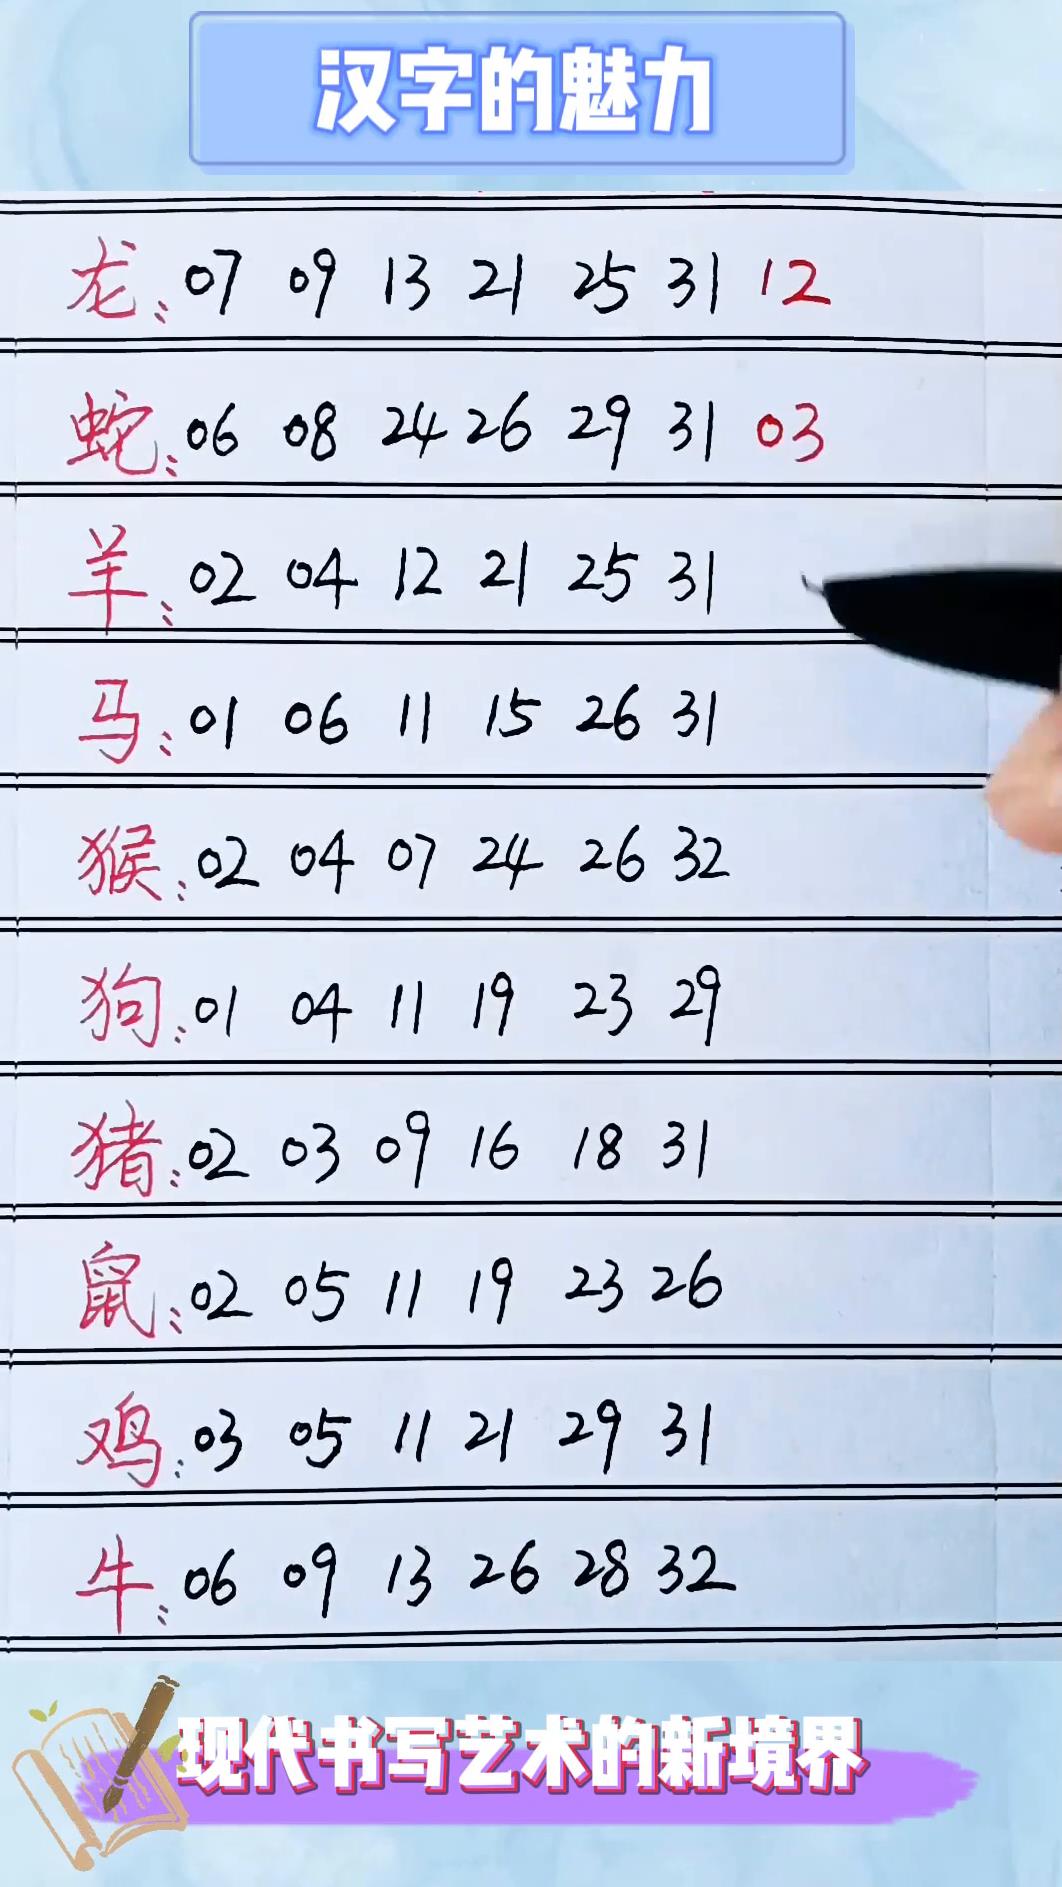 汉字的魅力
龙: 07 09 13 21 25 31 12
蛇: 06 08 24 26 29 31 03
羊: 02 04 12 21 25 31
马: 01 06 11 15 26 31
猴: 02 04 07 24 26 32
狗: 01 04 11 19 23 29
猪: 02 03 09 16 18 31
鼠: 02 05 11 19 23 26
鸡: 03 05 11 21 29 31
牛: 06 09 13 26 28 32
现代书写艺术的新境界